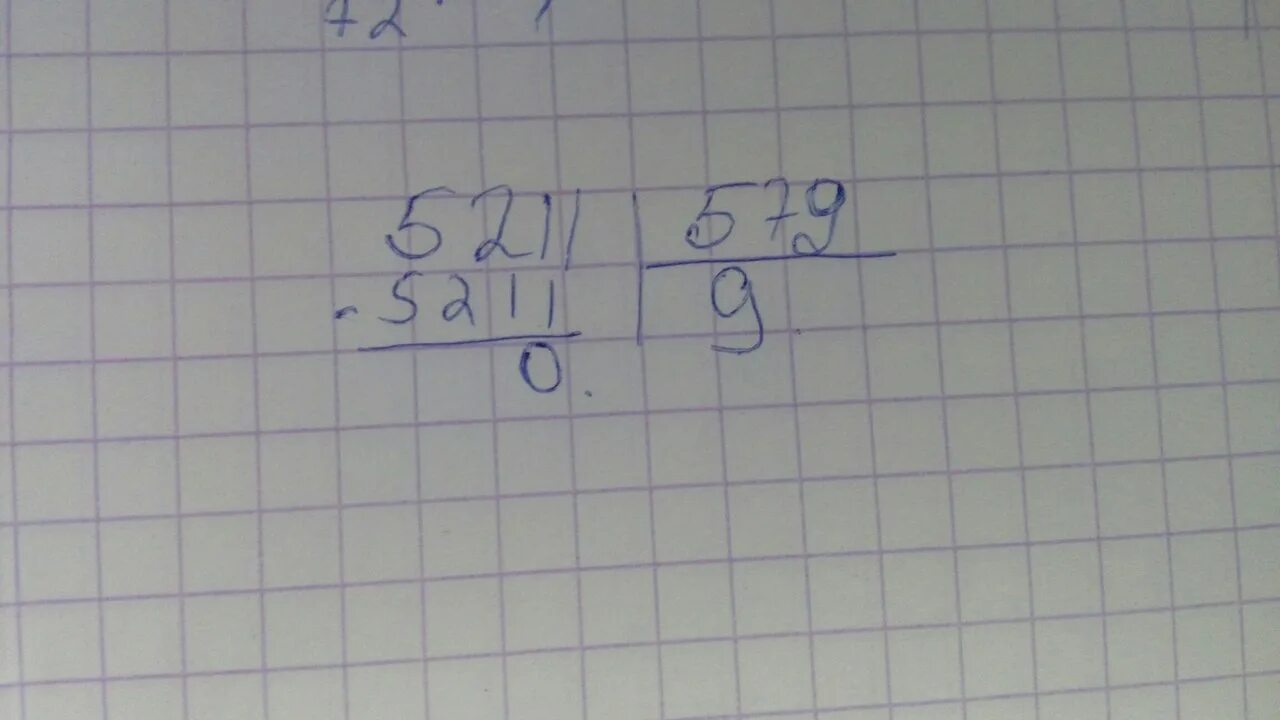 72
5211 | 579
- 5211 | 9
0.